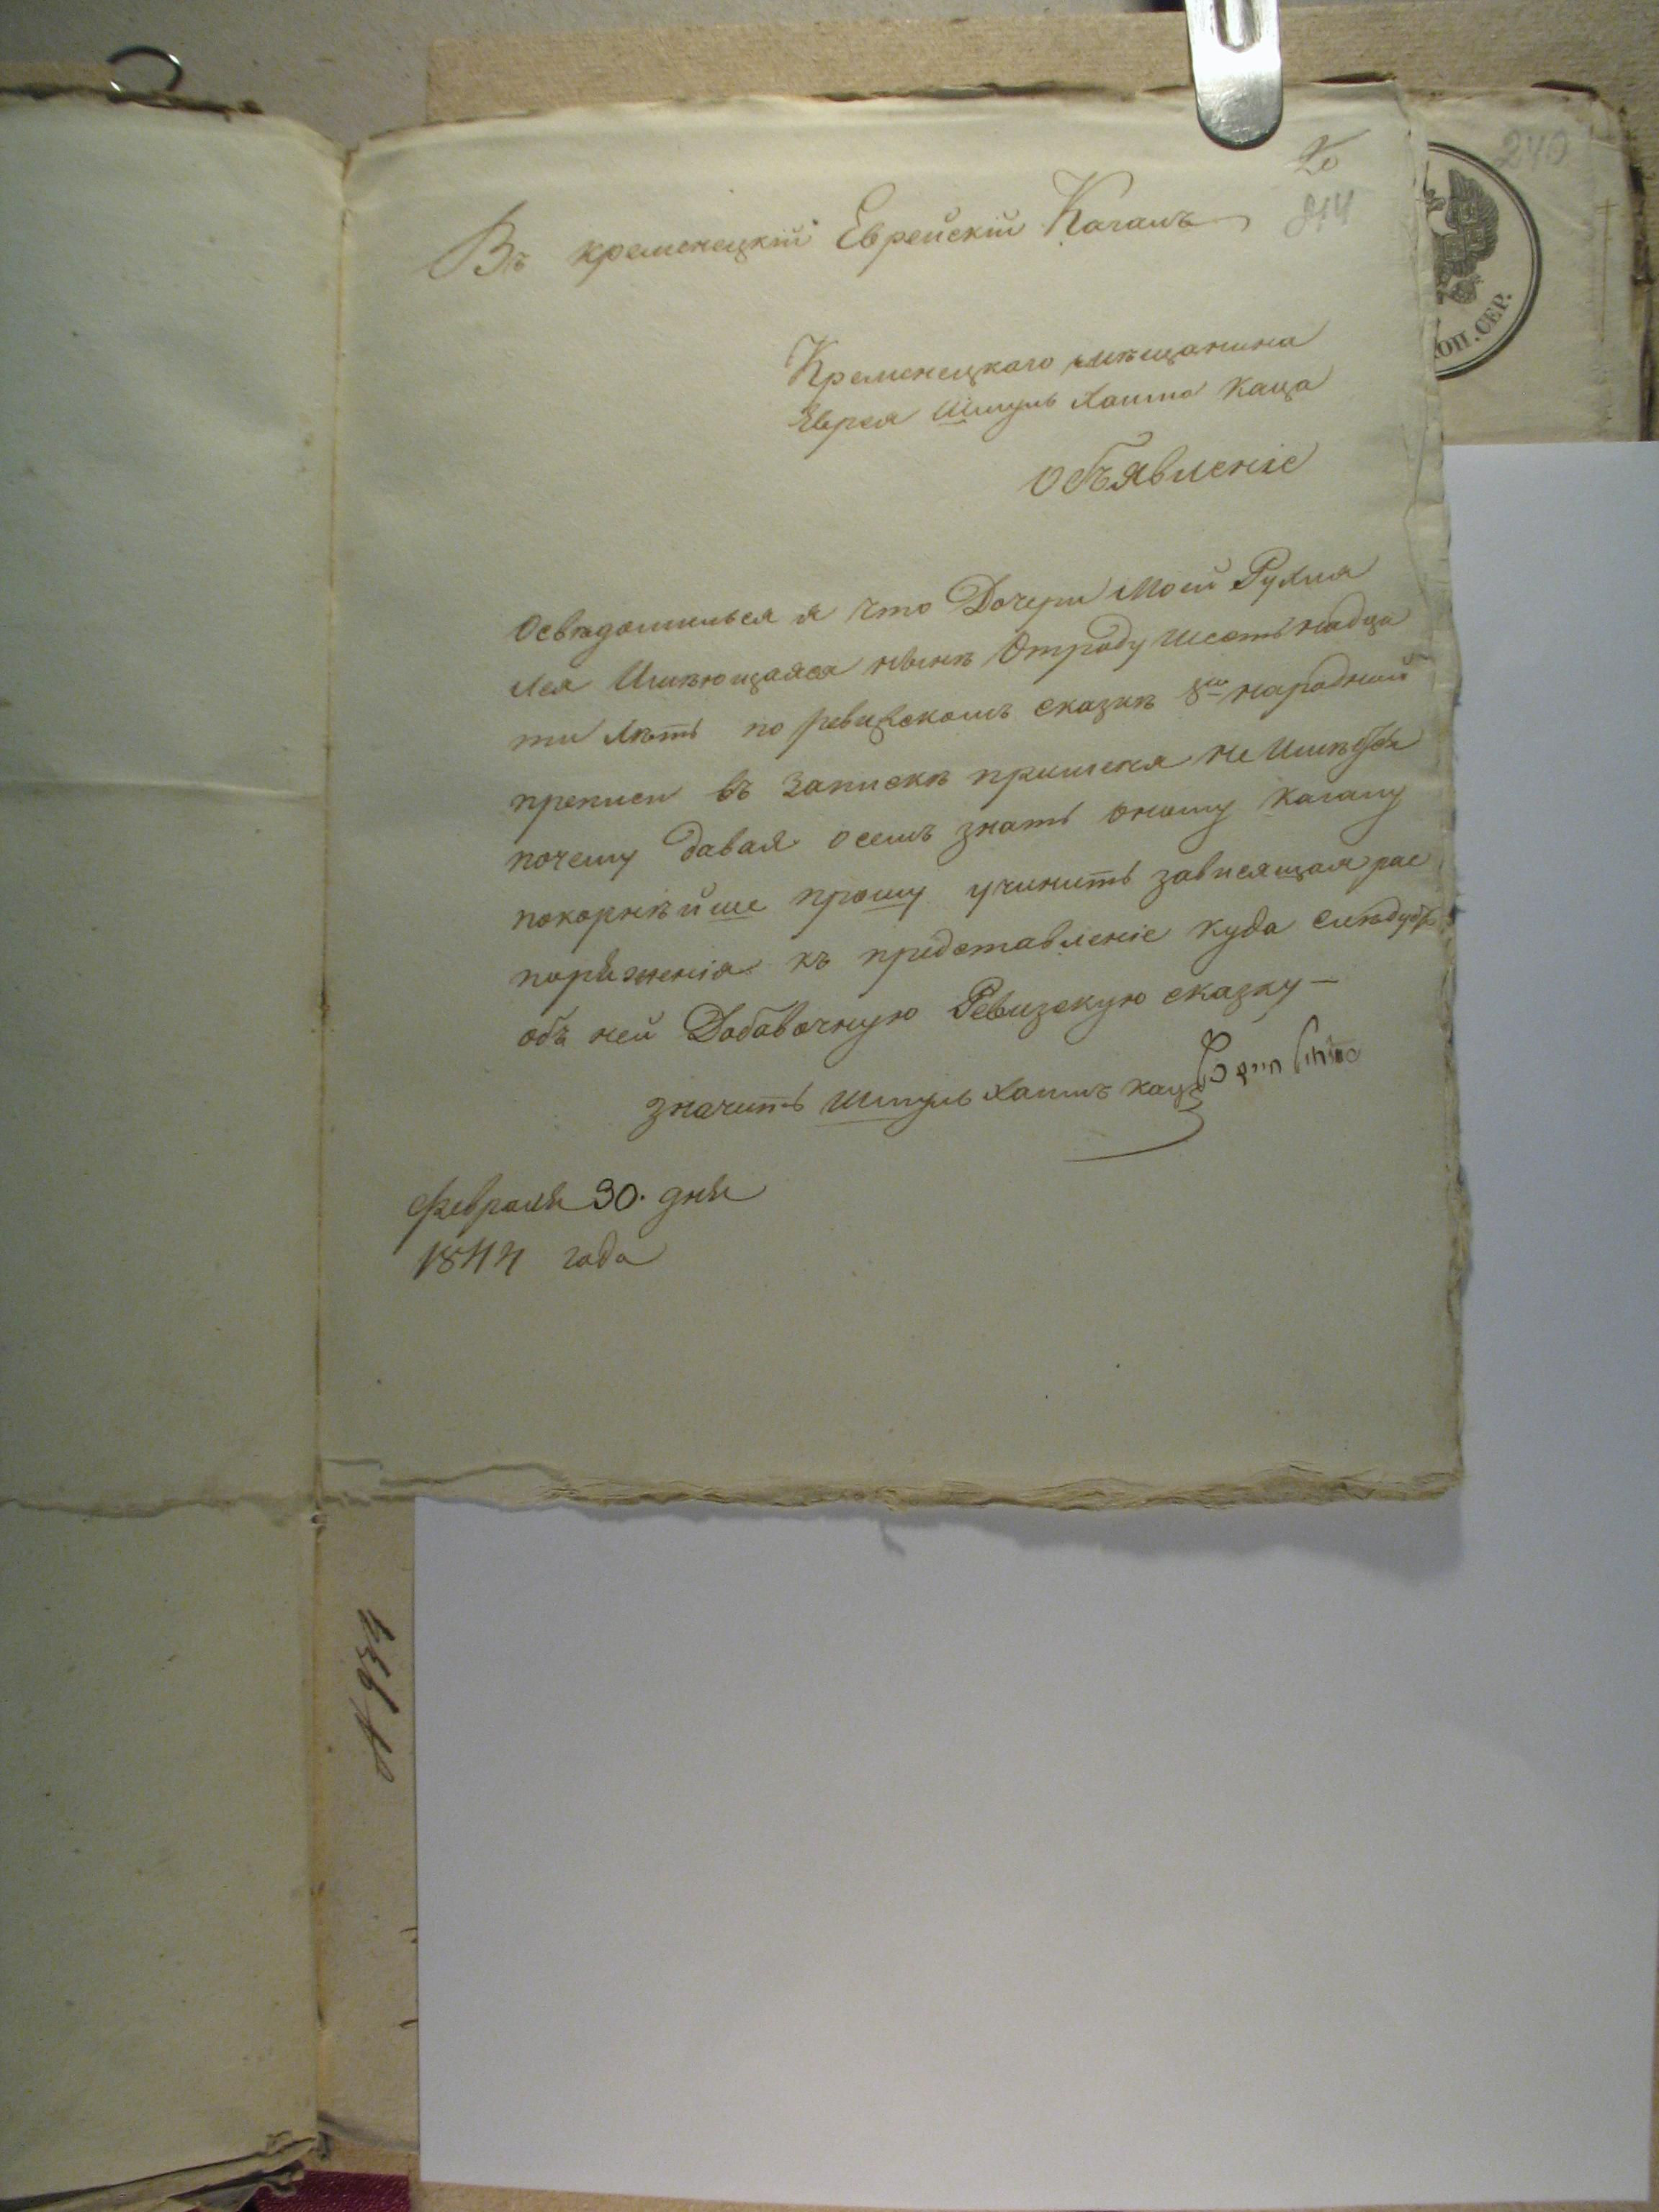 240
20
214
ОП. СЕР.
Въ кременецкій Еврейскій Кагалъ
Кременецкаго мѣщанина
Еврея Шмуль Хаима Каца
Объявленіе
Освѣдомился я что Дочери Моей Рухля
Лея Имѣющаяся нынѣ Отроду шестьнадца
ти лѣтъ по ревизскомъ сказкѣ 8й народной
преписи въ запискѣ пришена не имѣется
почему давая осемъ знать оному кагалу
покорнѣйше прошу учинить зависящая рас
поряженія къ представленіе куда слѣдуетъ
объ ней Добавочную Ревизскую сказку —
значитъ Шмуль Хаимъ кацъ
Февраля 30. дня
1844 года